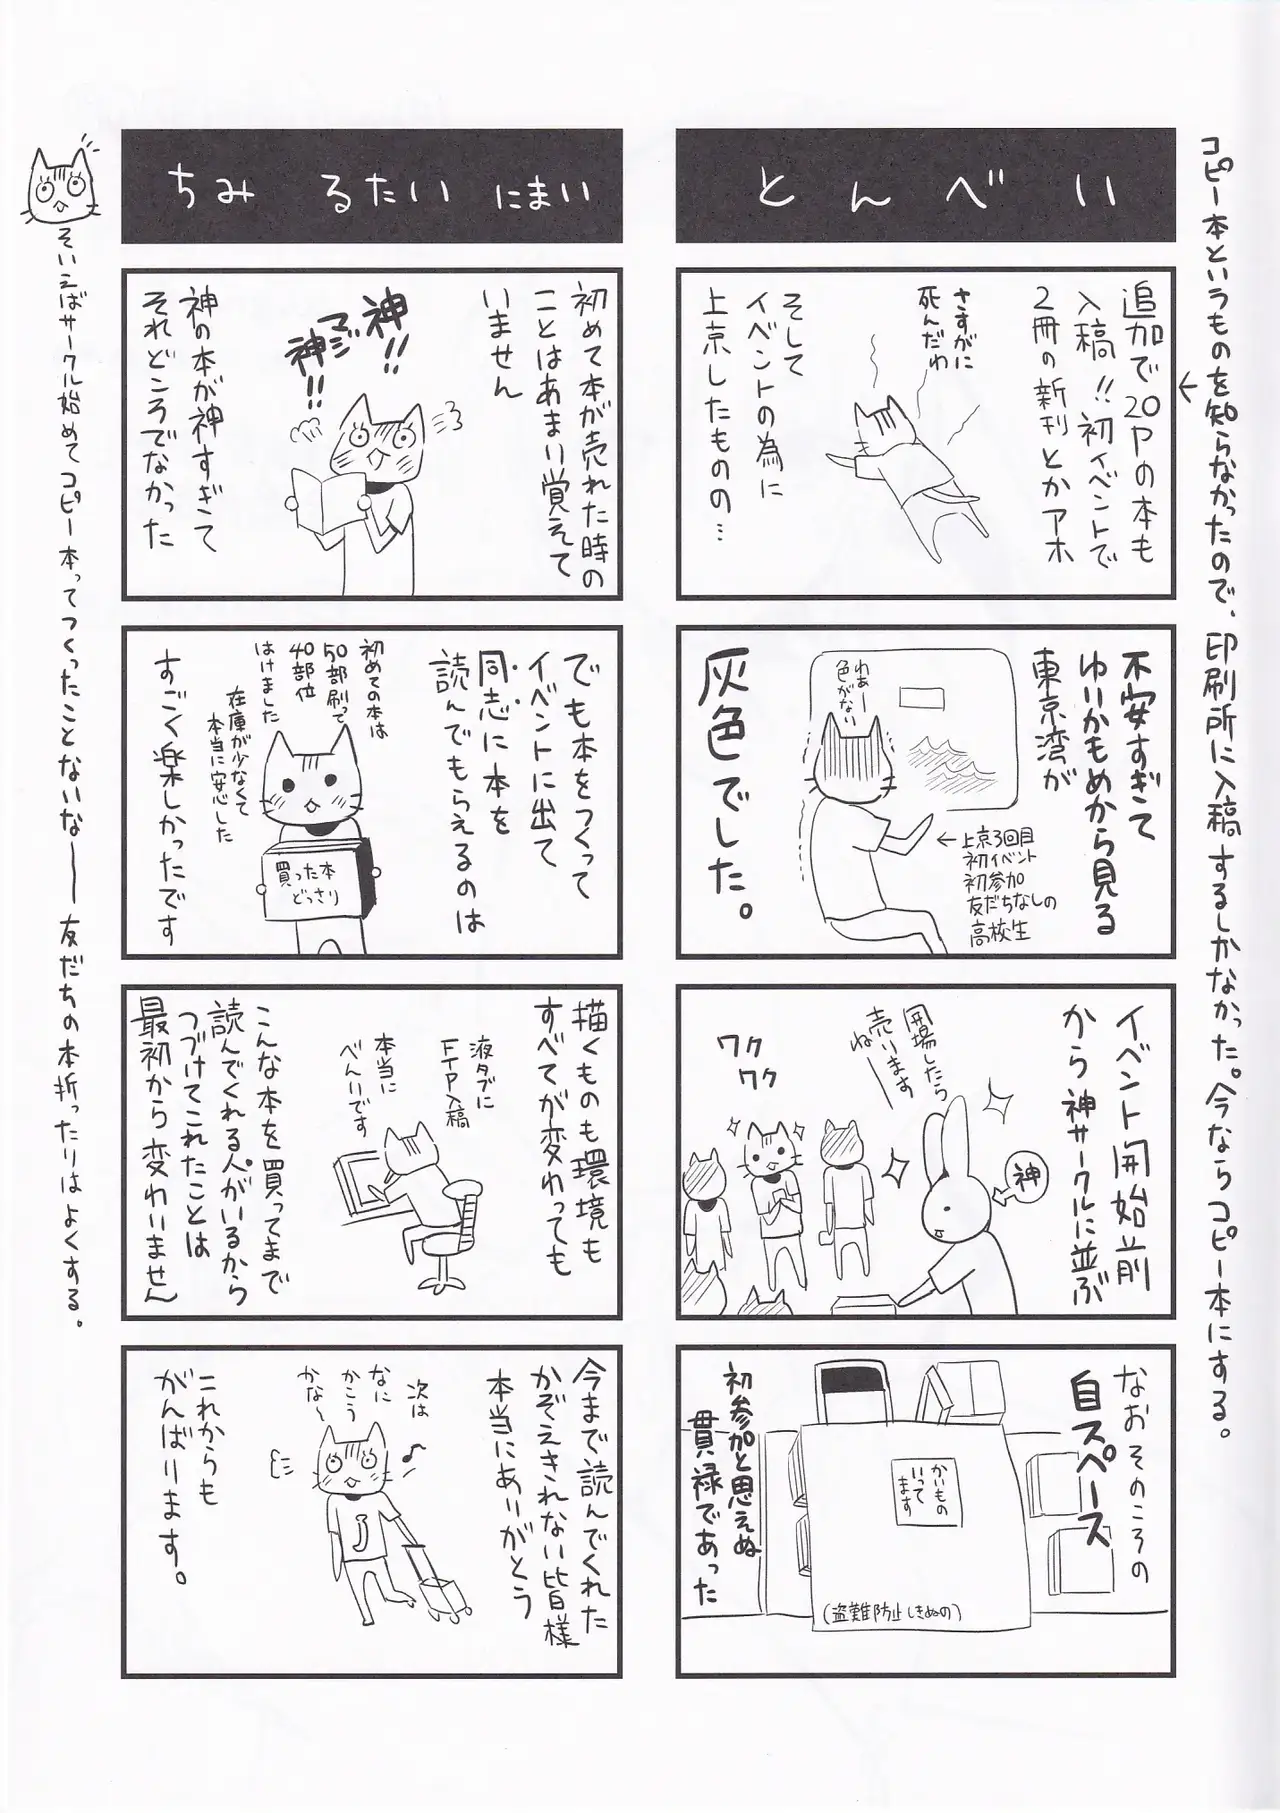 コピー本というものを知らなかったので、印刷所に入稿するしかなかった。今ならコピー本にする。
とんべい
追加で20Pの本も
入稿!!初イベントで
2冊の新刊とかアホ
さすがに
死んだわ
そして
イベントの為に
上京したものの…
不安すぎて
ゆりかもめから見る
東京湾が
わぁー
色がない
灰色でした。
←上京3回目
初イベント
初参加
友だちなしの
高校生
イベント開始前
から神サークルに並ぶ
神
開場したら
売ります
ねー
ワク
ワク
なおそのころの
自スペース
かいもの
いって
ます
(盗難防止しきぬの)
初参加と思えぬ
貫禄であった
ちみ るたい にまい
初めて本が売れた時の
ことはあまり覚えて
いません
神!!
マジ
神!!
神の本が神すぎて
それどころでなかった
でも本をつくって
イベントに出て
同志に本を
読んでもらえるのは
初めての本は
50部刷って
40部位
はけました
在庫が少なくて
本当に安心した
買った本
どっさり
すごく楽しかったです
描くものも環境も
すべてが変わっても
液タブに
FTP入稿
本当に
べんりです
こんな本を買ってまで
読んでくれる人がいるから
つづけてこれたことは
最初から変わりません
今まで読んでくれた
かぞえきれない皆様
本当にありがとう
次は
なに
かこう
かな〜
♪
これからも
がんばります。
そいえばサークル始めてコピー本ってつくったことないな――友だちの本折ったりはよくする。